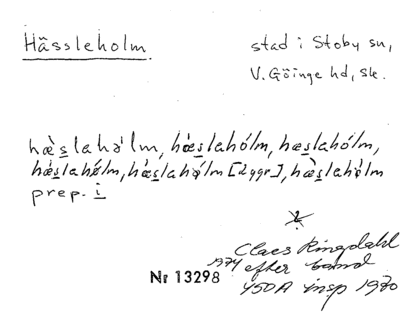 Hässleholm.
stad i Stoby sn,
V. Göinge hd, Sk.
hæ̀s̲lahòlm, hæ̀s̲lahólm, hæs̲lahólm,
hæ̀s̲lahǿlm, hæ̀s̲lahǿlm [2 ggr], hæ̀s̲lahòlm
prep. i
Claes Ringdahl
1974 efter band
450A insp 1970
Nr 13298